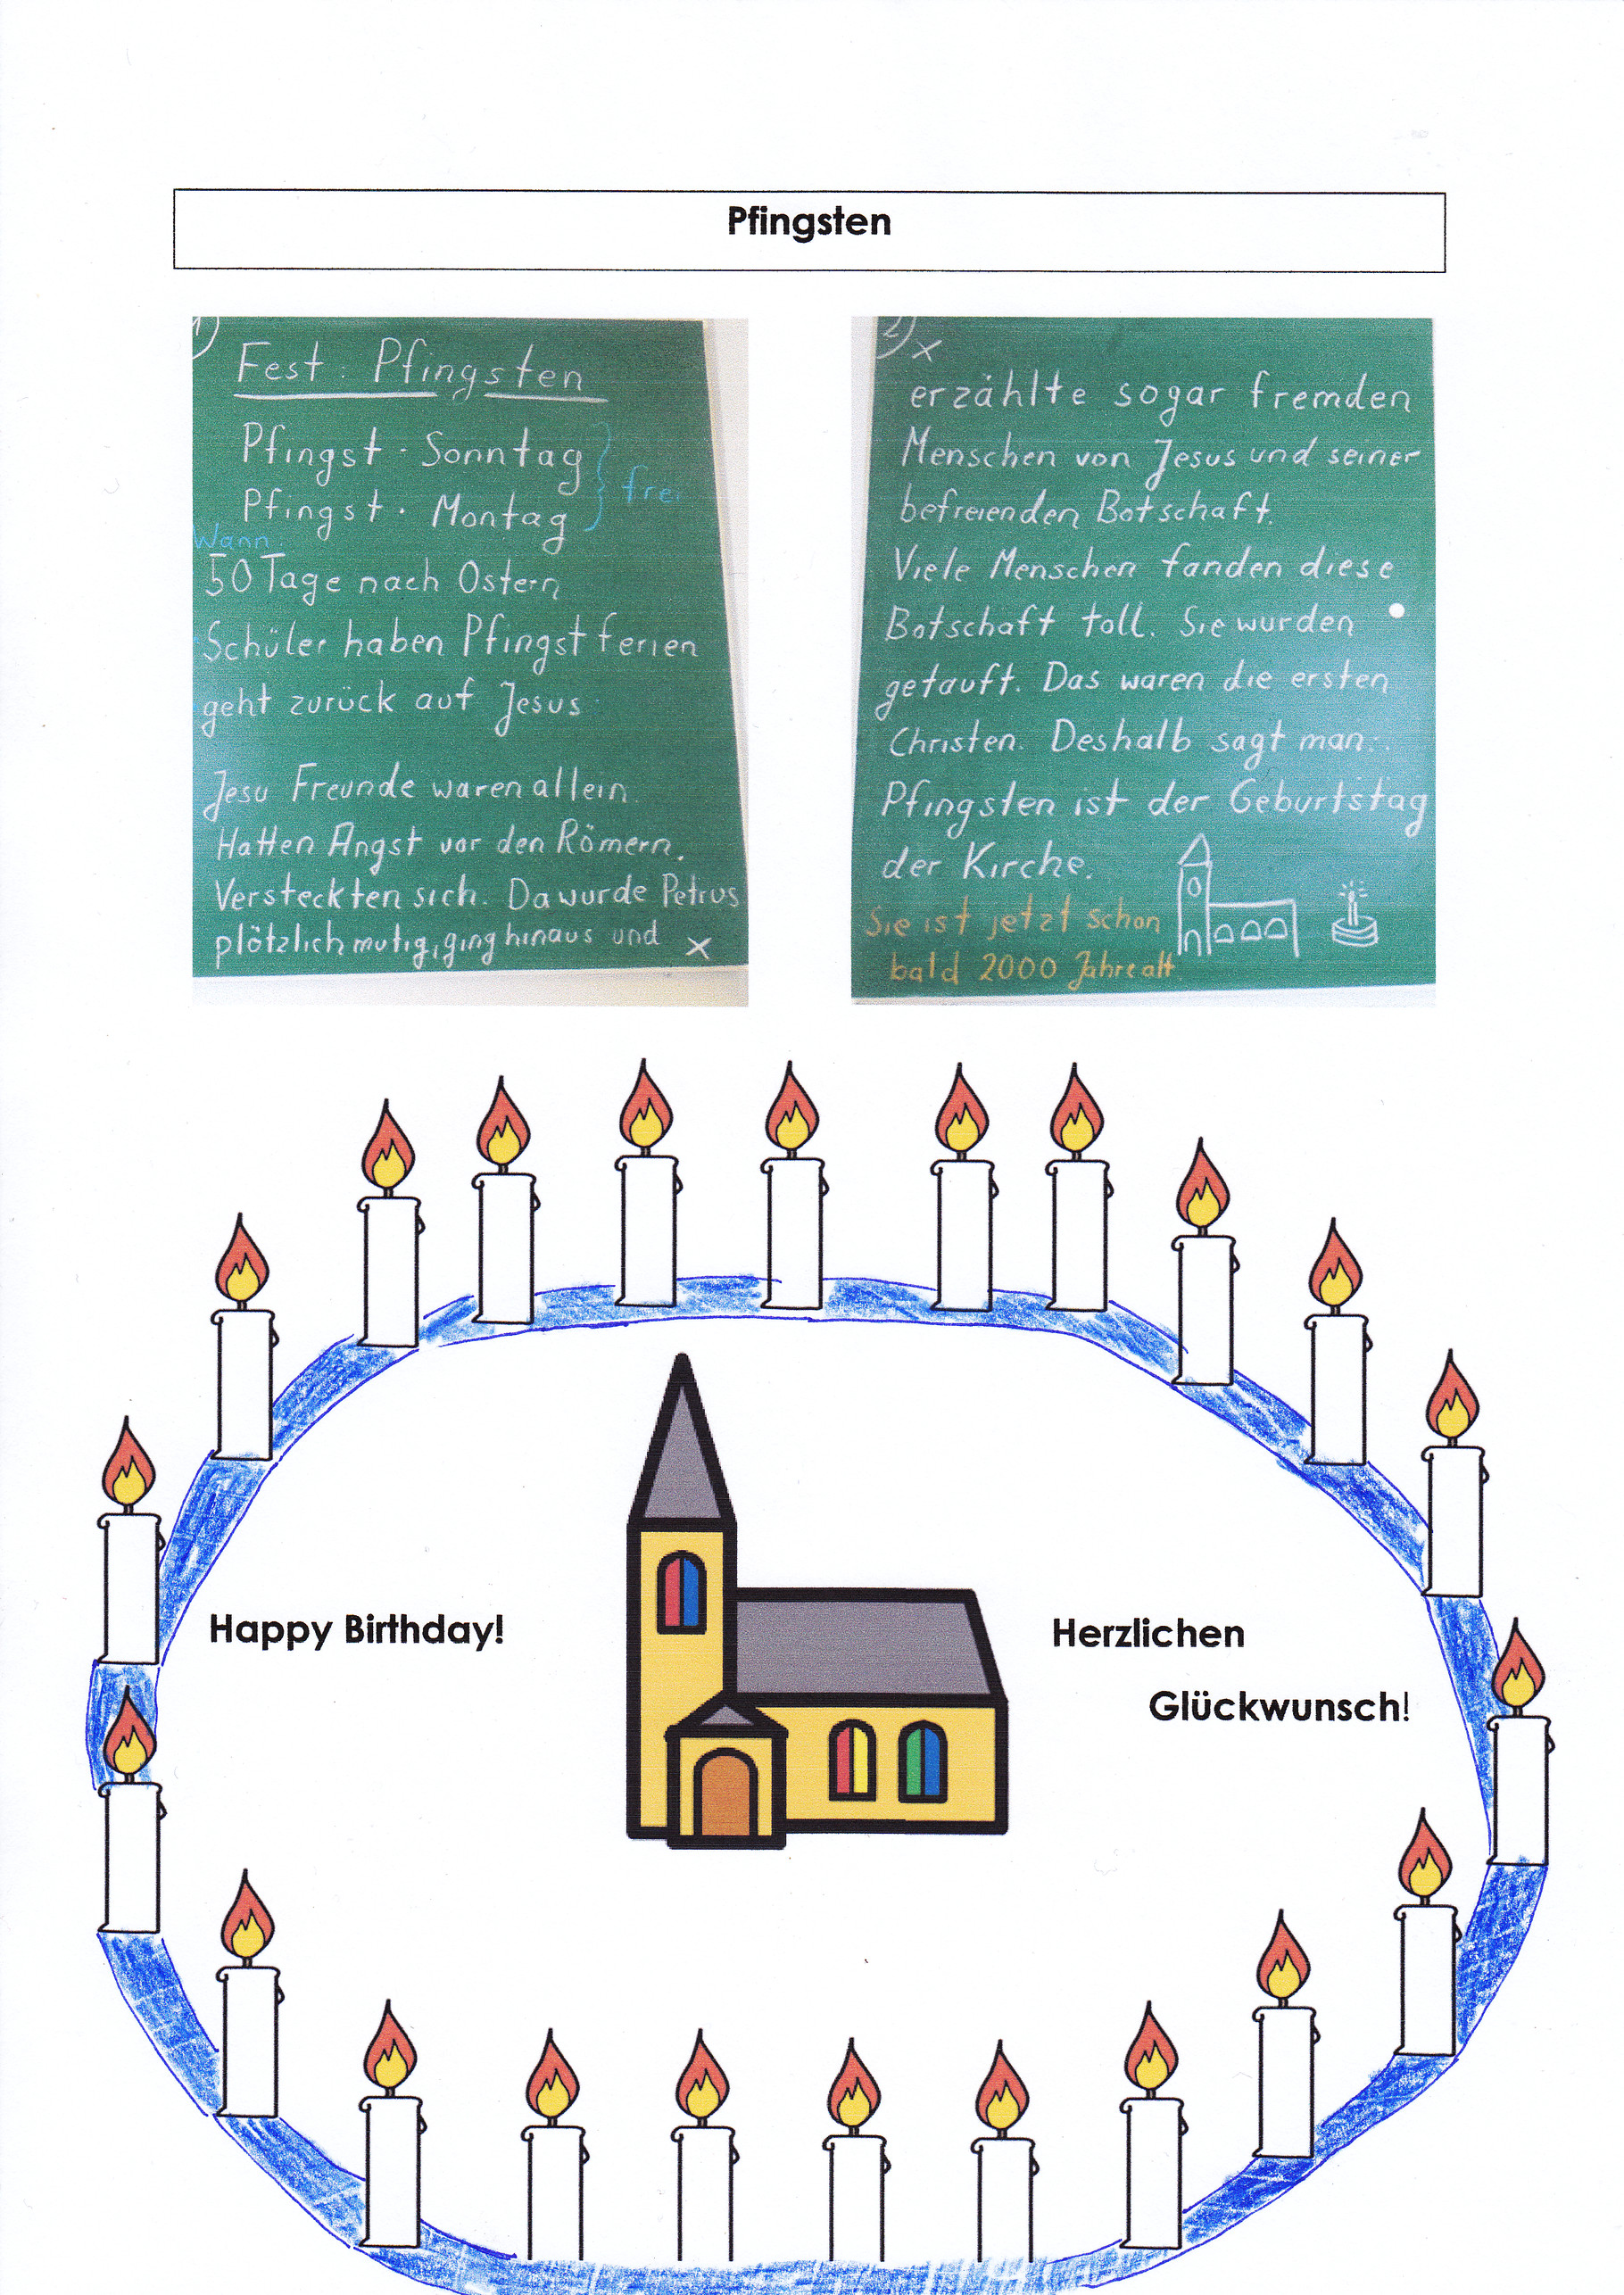 Pfingsten
1)
Fest: Pfingsten
Pfingst-Sonntag
Pfingst-Montag
frei
Wann:
50 Tage nach Ostern
Schüler haben Pfingstferien
geht zurück auf Jesus
Jesu Freunde waren allein.
Hatten Angst vor den Römern.
Versteckten sich. Da wurde Petrus
plötzlich mutig, ging hinaus und x
2) x
erzählte sogar fremden
Menschen von Jesus und seiner
befreienden Botschaft.
Viele Menschen fanden diese
Botschaft toll. Sie wurden
getauft. Das waren die ersten
Christen. Deshalb sagt man:
Pfingsten ist der Geburtstag
der Kirche.
Sie ist jetzt schon
bald 2000 Jahre alt.
Happy Birthday!
Herzlichen
Glückwunsch!